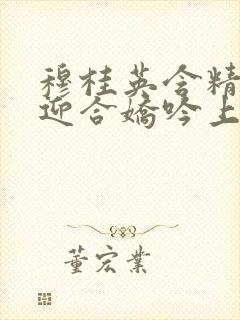 穆桂英含精
迎合娇吟上
董宏業